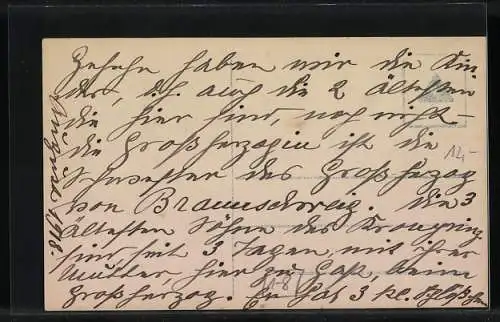 Gesehn haben wir die Kin-
der, d.h. auch die 2 ältesten
die hier sind, noch nicht –
die Großherzogin ist die
Schwester des Großherzog
von Braunschweig. Die 3
ältesten Söhne des Kronprinz
sind, seit 3 Tagen, mit ihrer
Mutter, hier zu Gast, beim
Großherzog. Er hat 3 kl. Schlößchen
August 1918.
12,-
1-8